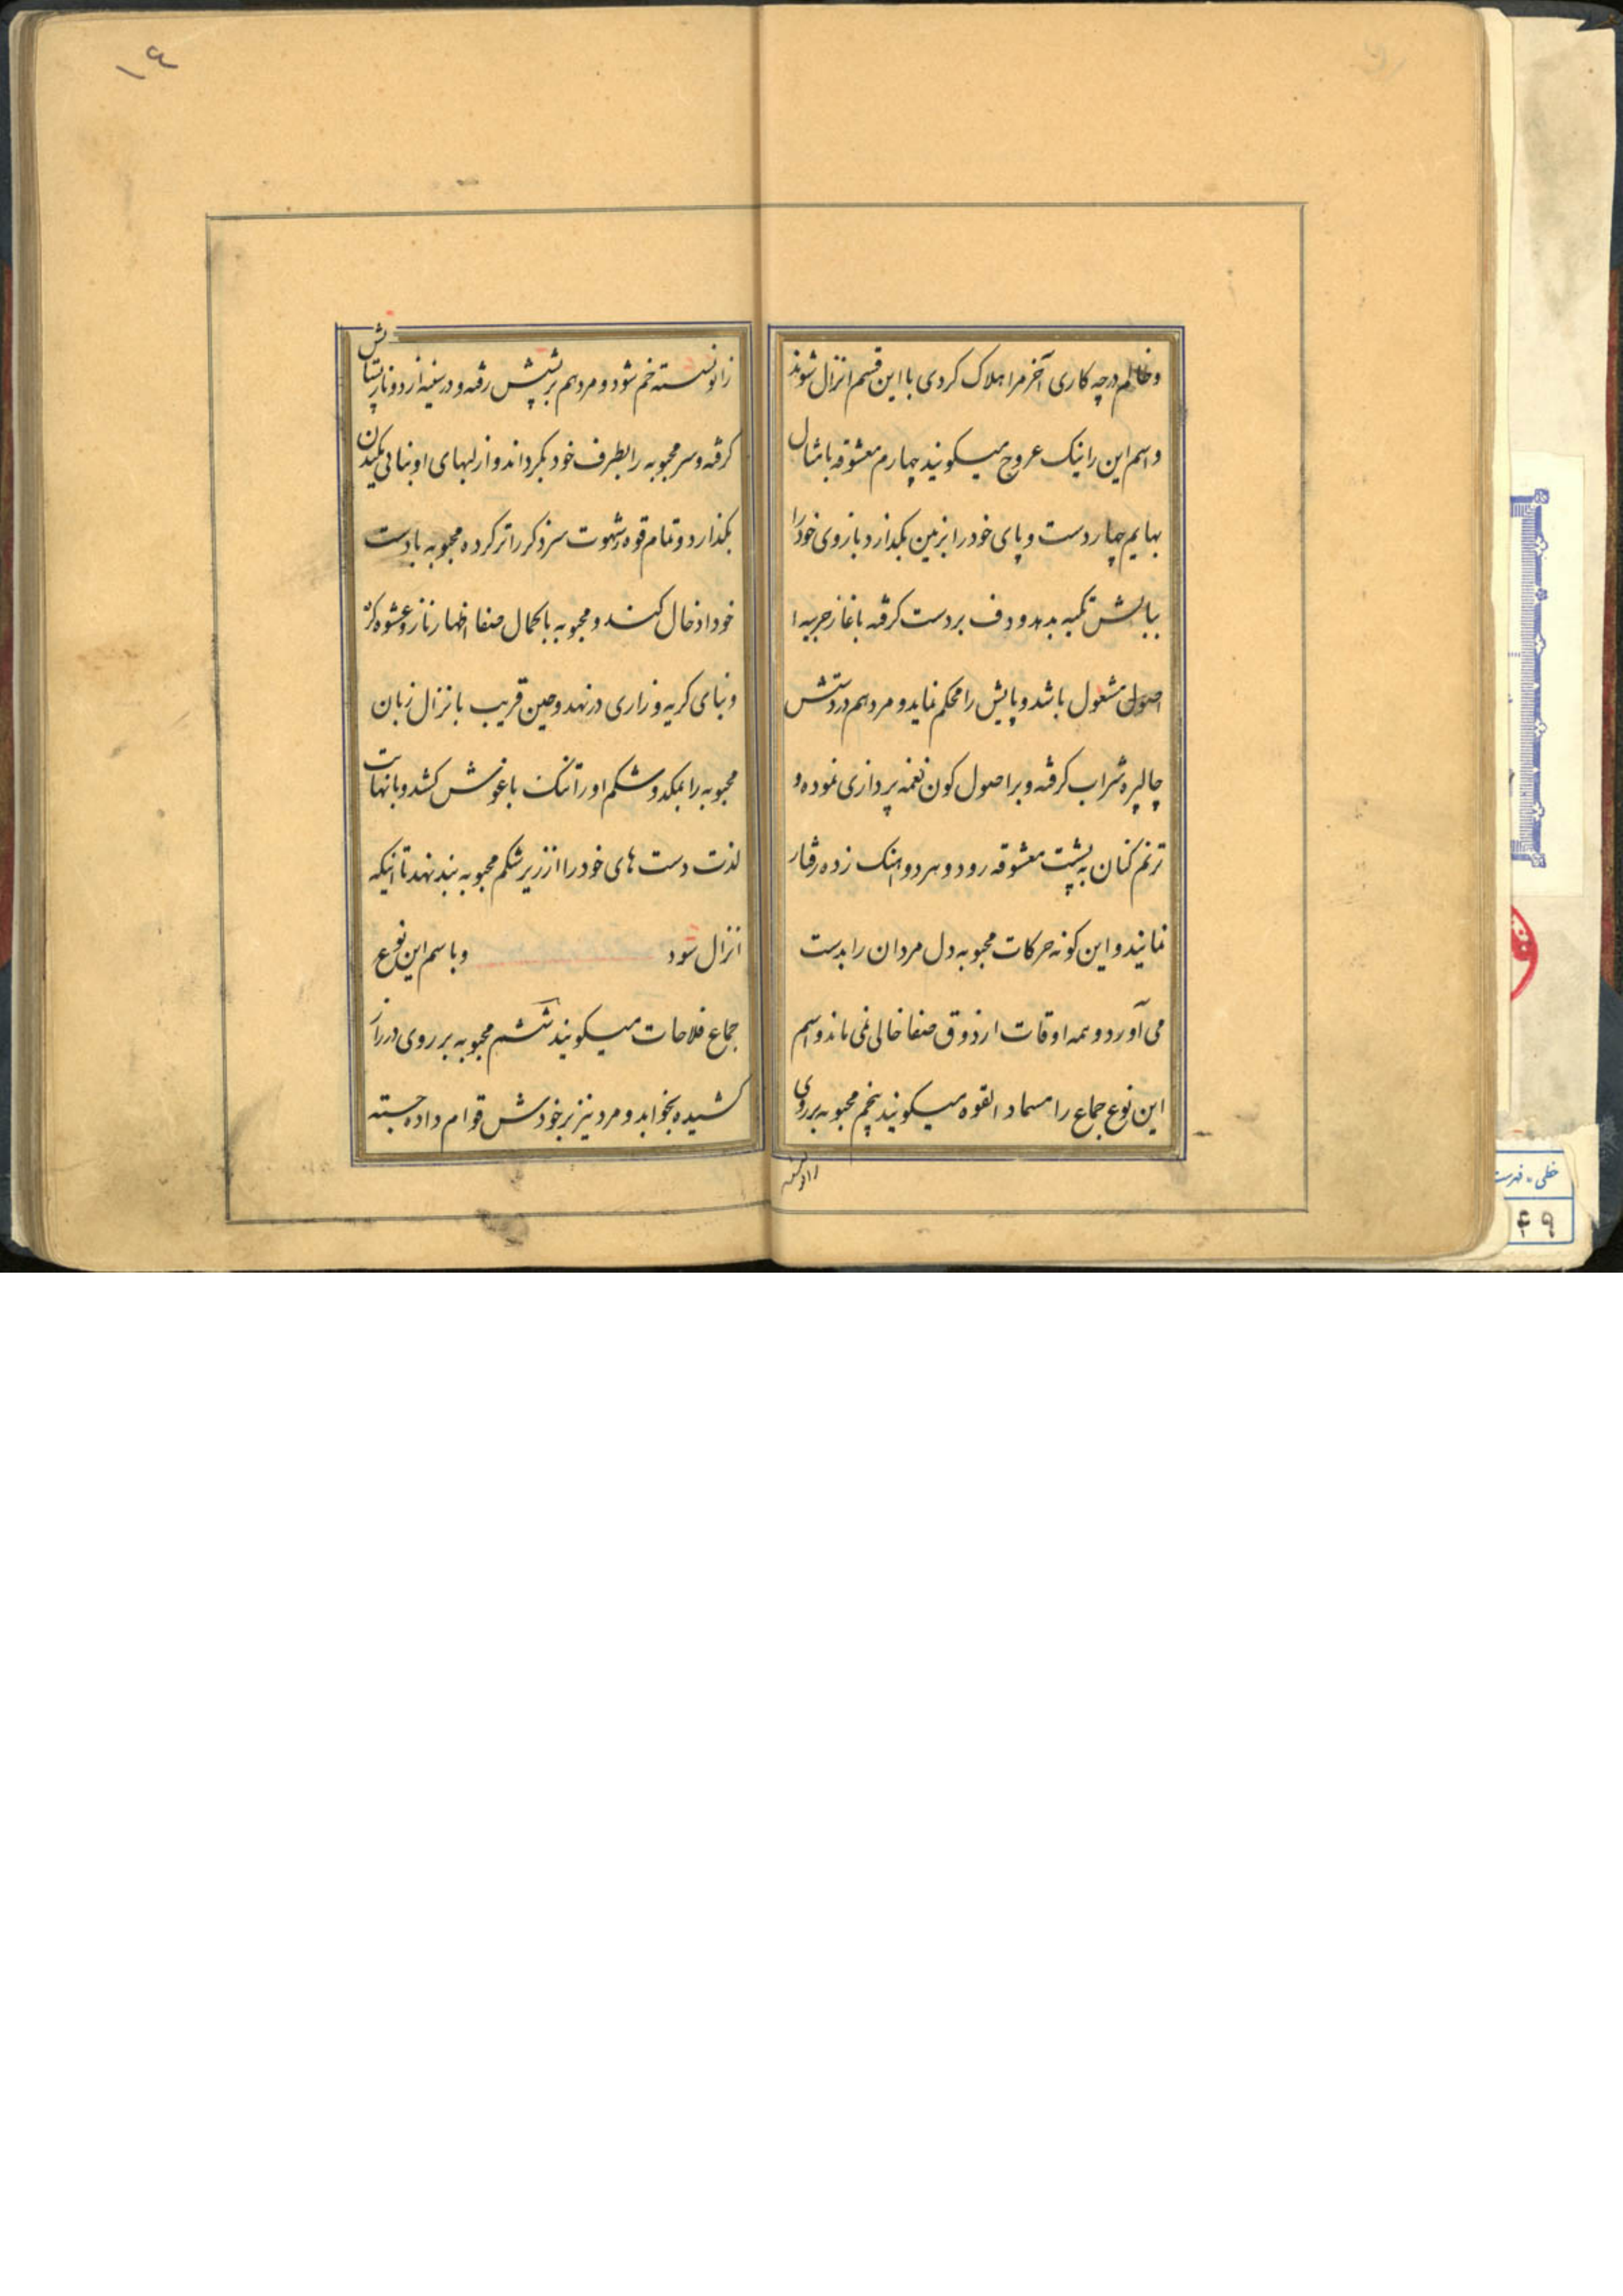 و ظالم در چه کاری آخر مرا هلاک کردی با این قسم انزال شوند
و اسم این را نیک عروج میکویند چهارم معشوقه بامثال
بهایم چهار دست و پای خود را بزمین بکذارد بازوی خود را
ببالش تکیه بدهد و دف بر دست کرفته باغاز
اصول مشغول باشد و پایش را محکم نماید و مرد هم در دستش
شراب کرفته و بر اصول کون نغمه پردازی نموده و
ترنم کنان به پشت معشوقه رود و هر دو اهنک زده رفتار
نمایند و این کونه حرکات محبوبه دل مردان را بدست
می آورد و همه اوقات از ذوق صفا خالی نمی ماند و اسم
این نوع جماع را القوه میکویند پنجم محبوبه بر روی
زانو نشسته
زانو نشسته خم شود و مرد هم بر پشتش رفته و در
کرفته و سر محبوبه را بطرف خود بکرداند و از لبهای او بنای مکیدن
بکذارد و تمام قوه شهوت سر ذکر را تر کرده محبوبه با دست
خود ادخال کند و محبوبه بالکمال صفا اظهار ناز و عشوه کرده
و بنای کریه و زاری در نهد و حین قریب بانزال زبان
محبوبه را بمکد و شکم او را تنک باغوش کشد و بانهایت
لذت دست های خود را از زیر شکم محبوبه بند نهد تا اینکه
انزال شود و باسم این نوع
جماع فلاحات میکویند ششم محبوبه بر روی دراز
کشیده بخوابد و مرد نیز بر خودش قوام داده جسته
۱۶
خطی - فهرست
۴۹